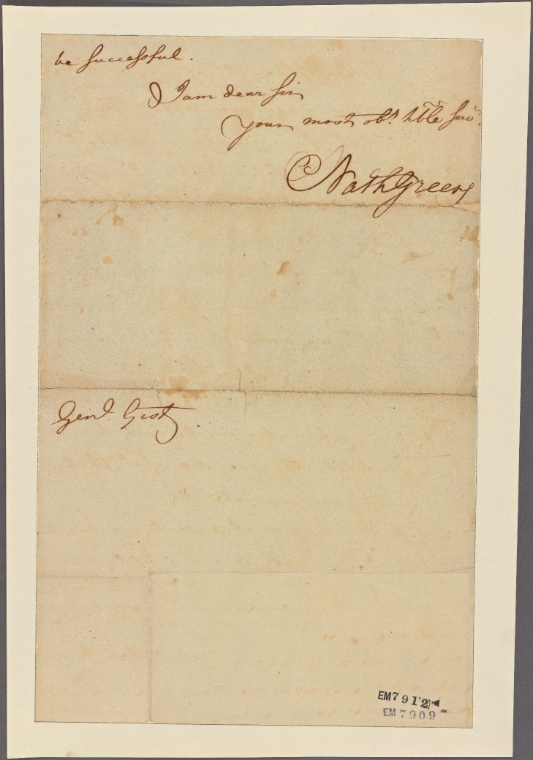 be successful.
I am dear Sir
Your most obt. hble Serv.
Nath Greene
Genl. Gist.
EM7912
EM 7909